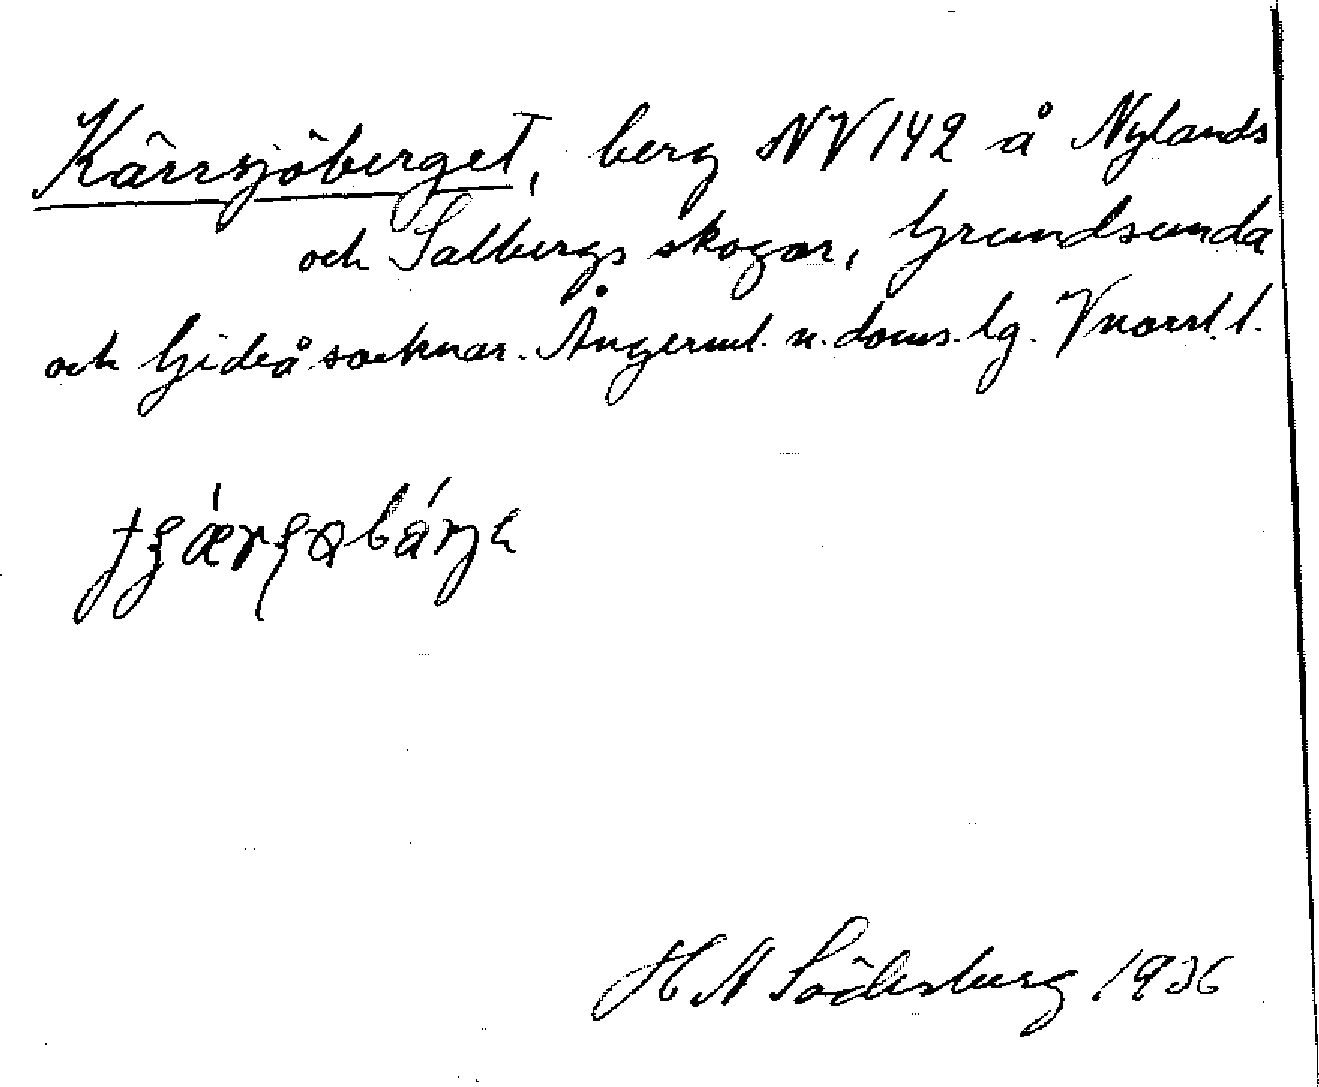 Kärrsjöberget, berg NV 142 å Nylands
och Salbergs skogar, Grundsunda
och Gideå socknar. Ångerml. n. doms. lg. Vnorrl. l.
H N Söderberg 1936